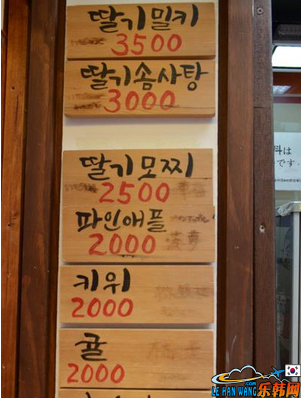 딸기밀키
3500
딸기솜사탕
3000
딸기모찌
2500
파인애플
2000
키위
2000
귤
2000
料は
です
LE HAN WANG
乐韩网